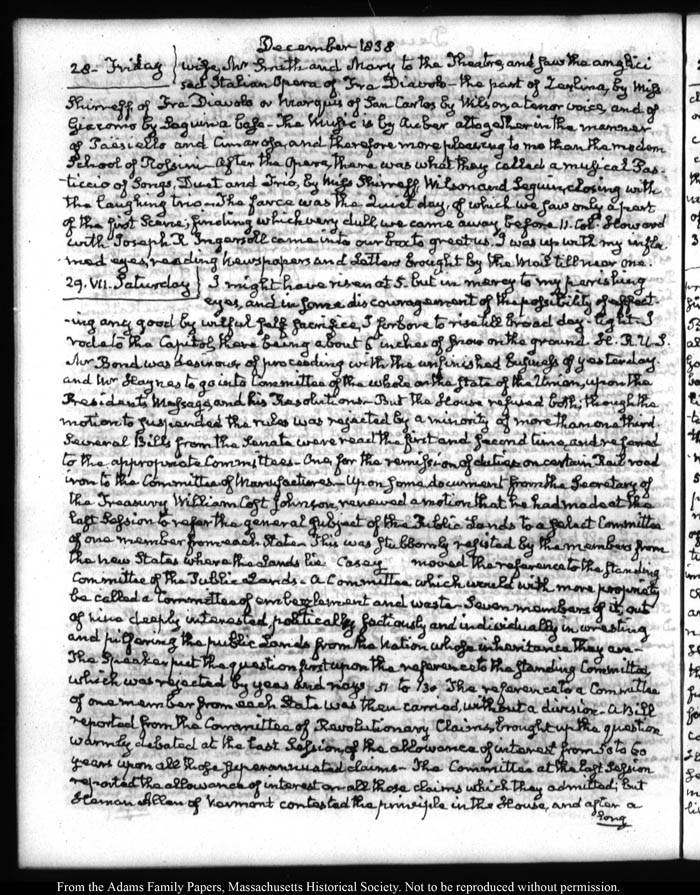 December 1838
28- Friday } wife, Mr Smith and Mary to the Theatre, and saw the anglici
sed Italian Opera of Fra Diavolo- the part of Zerlina, by Miss
Shirreff, of Fra Diavolo or Marquis of San Carlos by Wilson, a tenor voice, and of
Giacomo by Seguin a base. The Music is by Auber altogether in the manner
of Paesiello and Cimarosa, and therefore more pleasing to me than the modern
School of Rossini- After the Opera, there was what they called a musical Pas-
ticcio of Songs, Duet and Trio, by Miss Shirreff, Wilson and Seguin, closing with
the laughing trio- The farce was the Quiet day, of which we saw only a part
of the first Scene; finding which very dull, we came away before 11. Col. Howard
with Joseph R. Ingersoll came into our box to greet us. I was up with my infla-
med eyes, reading Newspapers and Letters brought by the Mail till near one.
29. VII. Saturday } I might have risen at 5. but in mercy to my perishing
eyes, and in some discouragement of the possibility of effect-
-ing any good by wilful self sacrifice, I forbore to rise till broad day-light- I
rode to the Capitol, there being about 6 inches of snow on the ground. H. R. U. S.
Mr Bond was desirous of proceeding with the unfinished business of yesterday
and Mr Haynes to go into Committee of the whole on the State of the Union, upon the
President's Message, and his Resolutions- But the House refused both; though the
motion to suspend the rules was rejected by a minority of more than one third
Several Bills from the Senate were read the first and second time, and referred
to the appropriate Committees- One, for the remission of duties on certain Rail road
iron to the Committee of Manufactures- Upon some document from the Secretary of
the Treasury William Cost Johnson, renewed a motion that he had made at the
last Session to refer the general subject of the Public Lands to a select Committee
of one member from each State- This was stubbornly resisted by the members from
the new States where the Lands lie Casey moved the reference to the standing
Committee of the Public Lands- A Committee which would with more propriety
be called a Committee of embezzlement and waste- Seven members of it, out
of nine deeply interested, politically, factiously and individually in wresting
and pilfering the public Lands from the Nation whose inheritance they are-
The Speaker put the question first upon the reference to the standing Committee,
which was rejected by yeas and nays 51 to 130 The reference to a Committee
of one member from each State was then carried, without a division- A Bill
reported from the Committee of Revolutionary Claims, brought up the question
warmly debated at the last Session, of the allowance of interest from 50 to 60
years upon all those superannuated claims- The Committee at the last Session
reported the allowance of interest on all those claims which they admitted; but
Heman Allen of Vermont contested the principle in the House, and after a
long
From the Adams Family Papers, Massachusetts Historical Society. Not to be reproduced without permission.